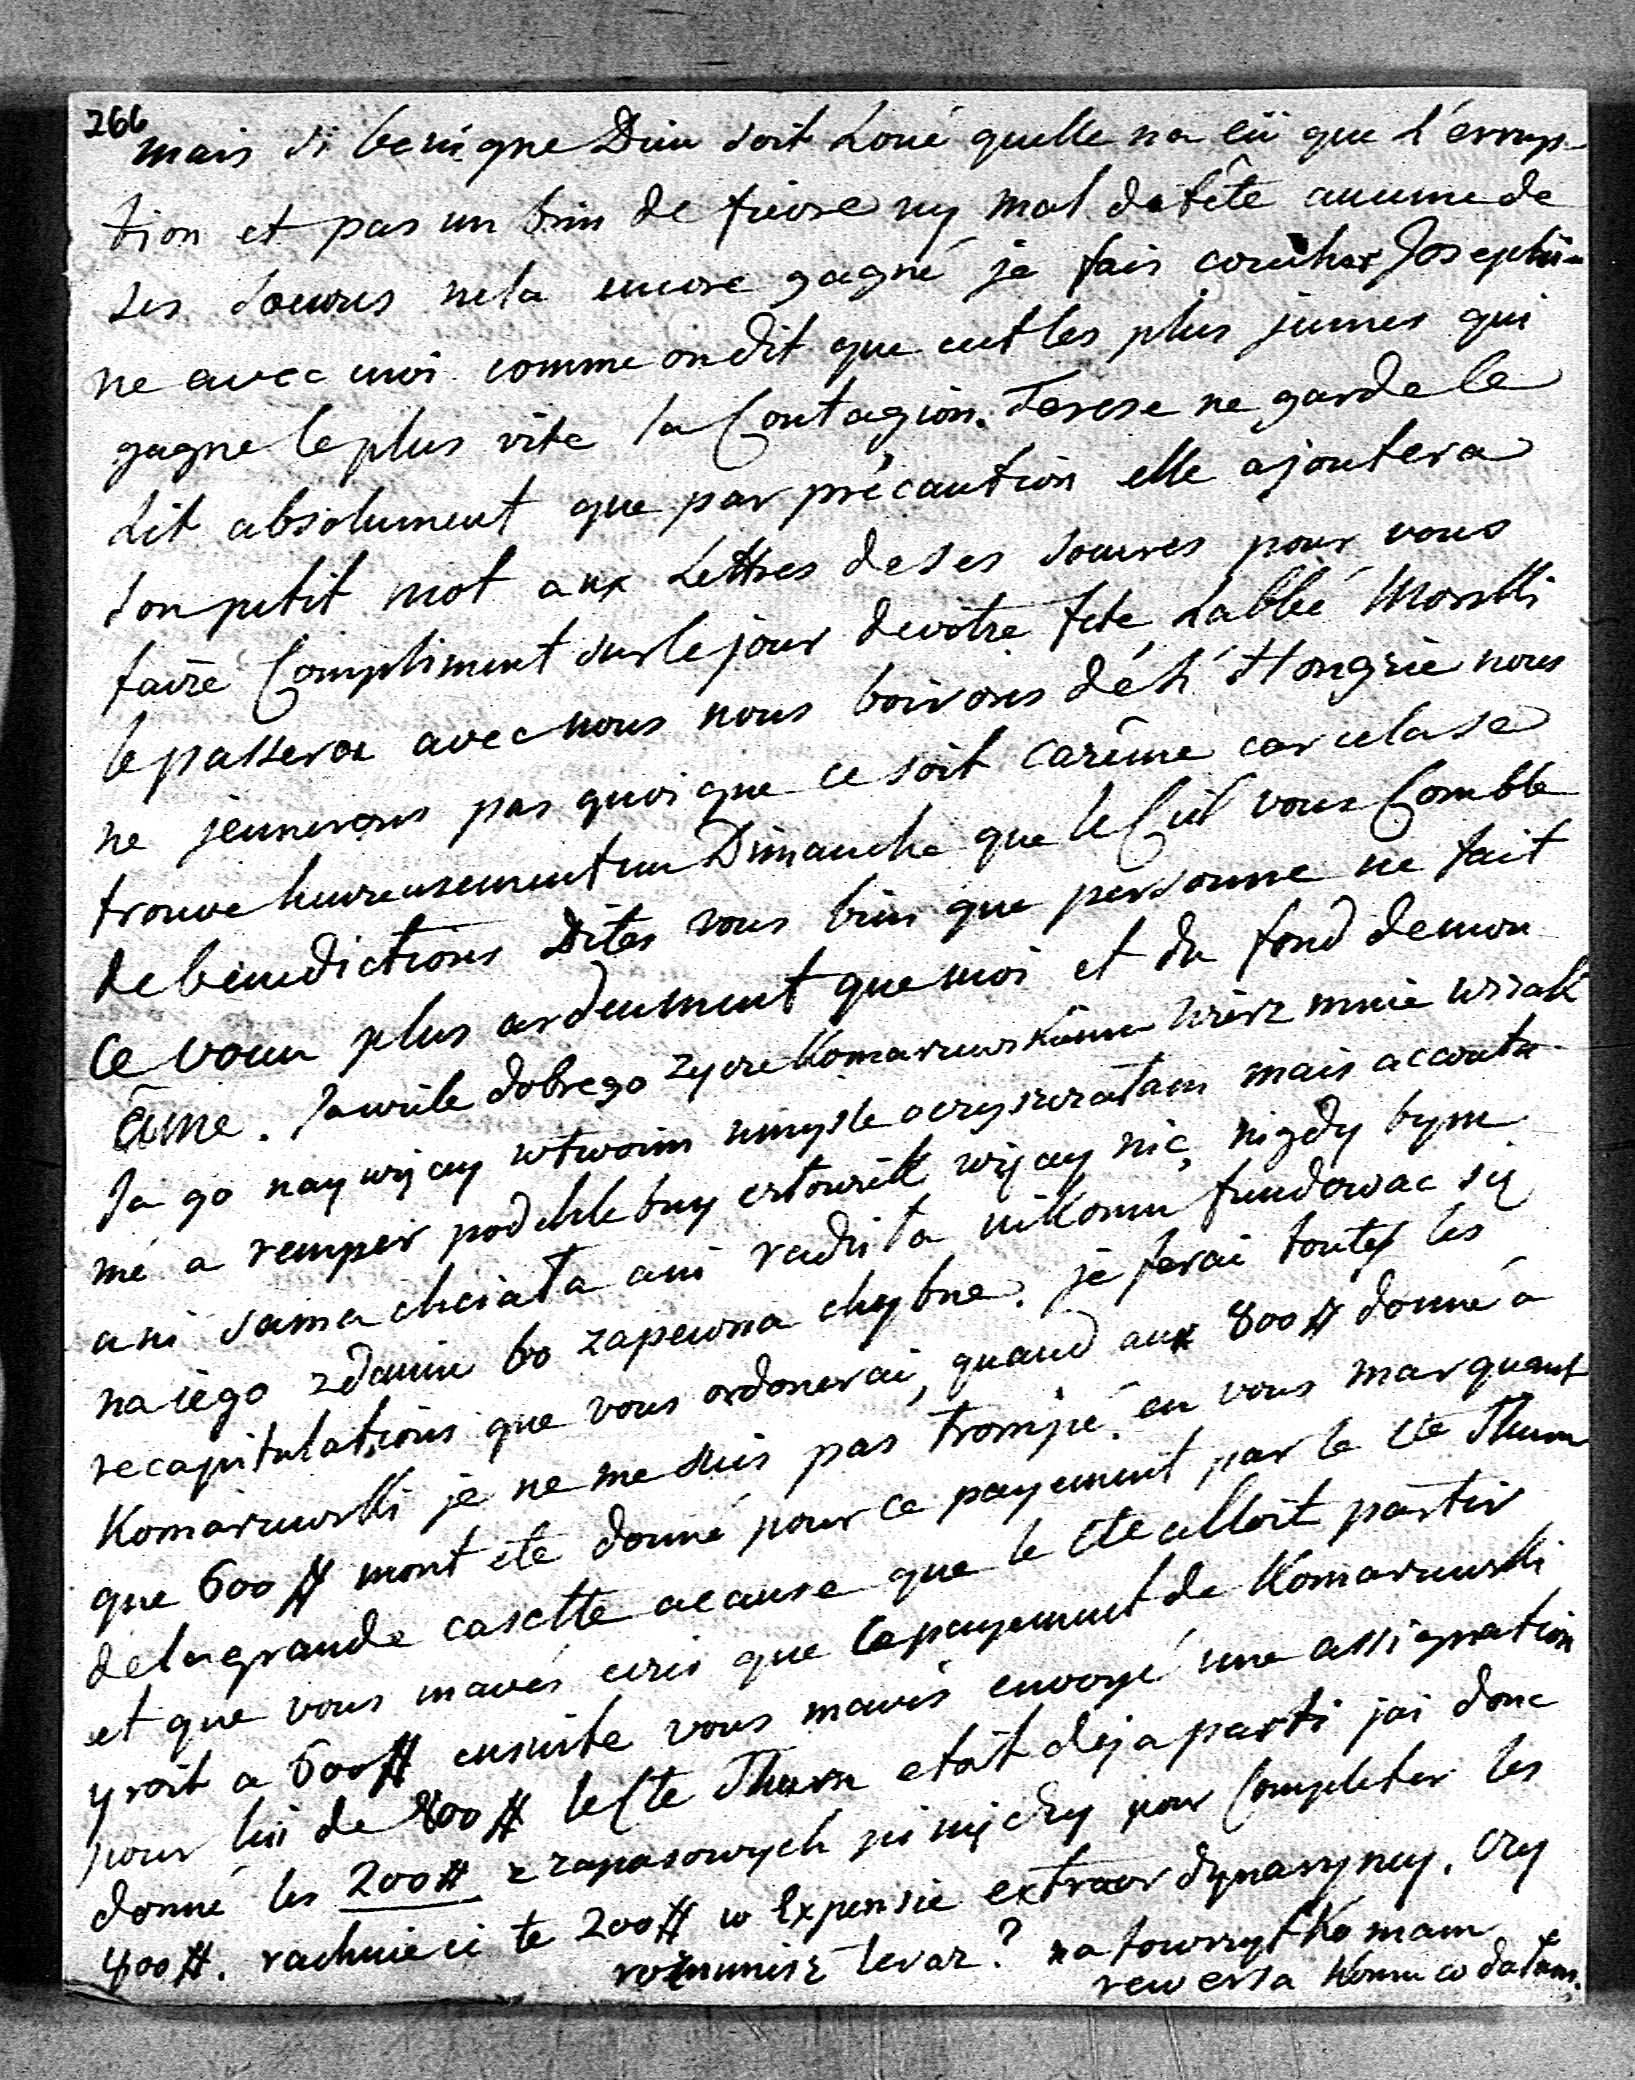 266
mais si benigne Dieu soit Loué quelle na eü que l'érrup-
tion et pas un brin de fievre ny mal de tête aucune de
ses soeures nela encore gagné je fais coucher Josephii-
ne avec moi comme on dit que cest les plus jeunes qui
gagne le plus vite la Contagion. Terese ne garde le
Lit absolument que par précaution elle ajoutera
son petit mot aux Lettres de ses soeures pour vous
faire Compliment sur le jour de votre fete Labbé Morski
le passera avec nous nous boirons de L'Hongrie nous
ne jeunerons pas quoique ce soit carême car cela se
trouve heureusement un Dimanche que le Ciel vous Comble
de bénedictions Dites vous bien que personne ne fait
ce voeu plus ardemment que moi et du fond de mon
âme. Ja wiele dobrego zycze Komarzewskiemu wierz mnie wszak
Ja go naywięcy w twoim umysle oczyszczałam mais accoutu-
mé a remper podchlebny człowiek więcy nic, nigdy bym
ani sama chciała ani radziła nikomu fundowac się
na iego zdaniu bo zapewna chybne. je ferai toutes les
recapitulations que vous ordonerai, quand aux 800 # donné a
Komarzewski je ne me suis pas trompé en vous marquant
que 600 # mont ete donné pour ce payement par le Cte Thurn
de la grande casette acause que le Cte alloit partir
et que vous mavés ecris que le payement de Komarzewski
yroit a 600 # ensuite vous mavés envoyé une assignation
pour lui de 800 # le Cte Thurn etoit deja parti jai donc
donné les 200 # z zapasowych pieniędzy pour Completer les
800 #. rachuie ci te 200 # w Expensie extraordynaryney. czy
rozumisz teraz? na to wszytko mam
rewersa komu co dałam.